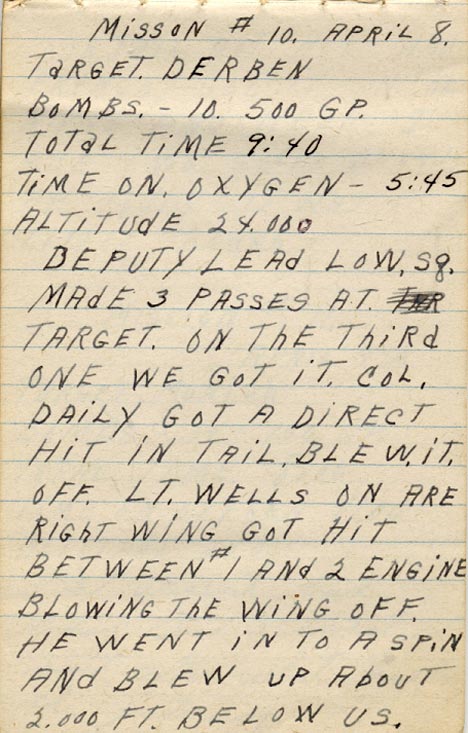 MISSON # 10. APRIL 8.
TARGET. DERBEN
BOMBS. - 10. 500 GP.
TOTAL TIME 9:40
TIME ON, OXYGEN - 5:45
ALTITUDE 24.000
DEPUTY LEAD LOW, SQ.
MADE 3 PASSES AT.
TARGET. ON THE THIRD
ONE WE GOT IT. COL.
DAILY GOT A DIRECT
HIT IN TAIL. BLEW.IT.
OFF. LT. WELLS ON ARE
RIGHT WING GOT HIT
BETWEEN #1 AND 2 ENGINE
BLOWING THE WING OFF.
HE WENT IN TO A SPIN
AND BLEW UP ABOUT
2.000 FT. BELOW US.